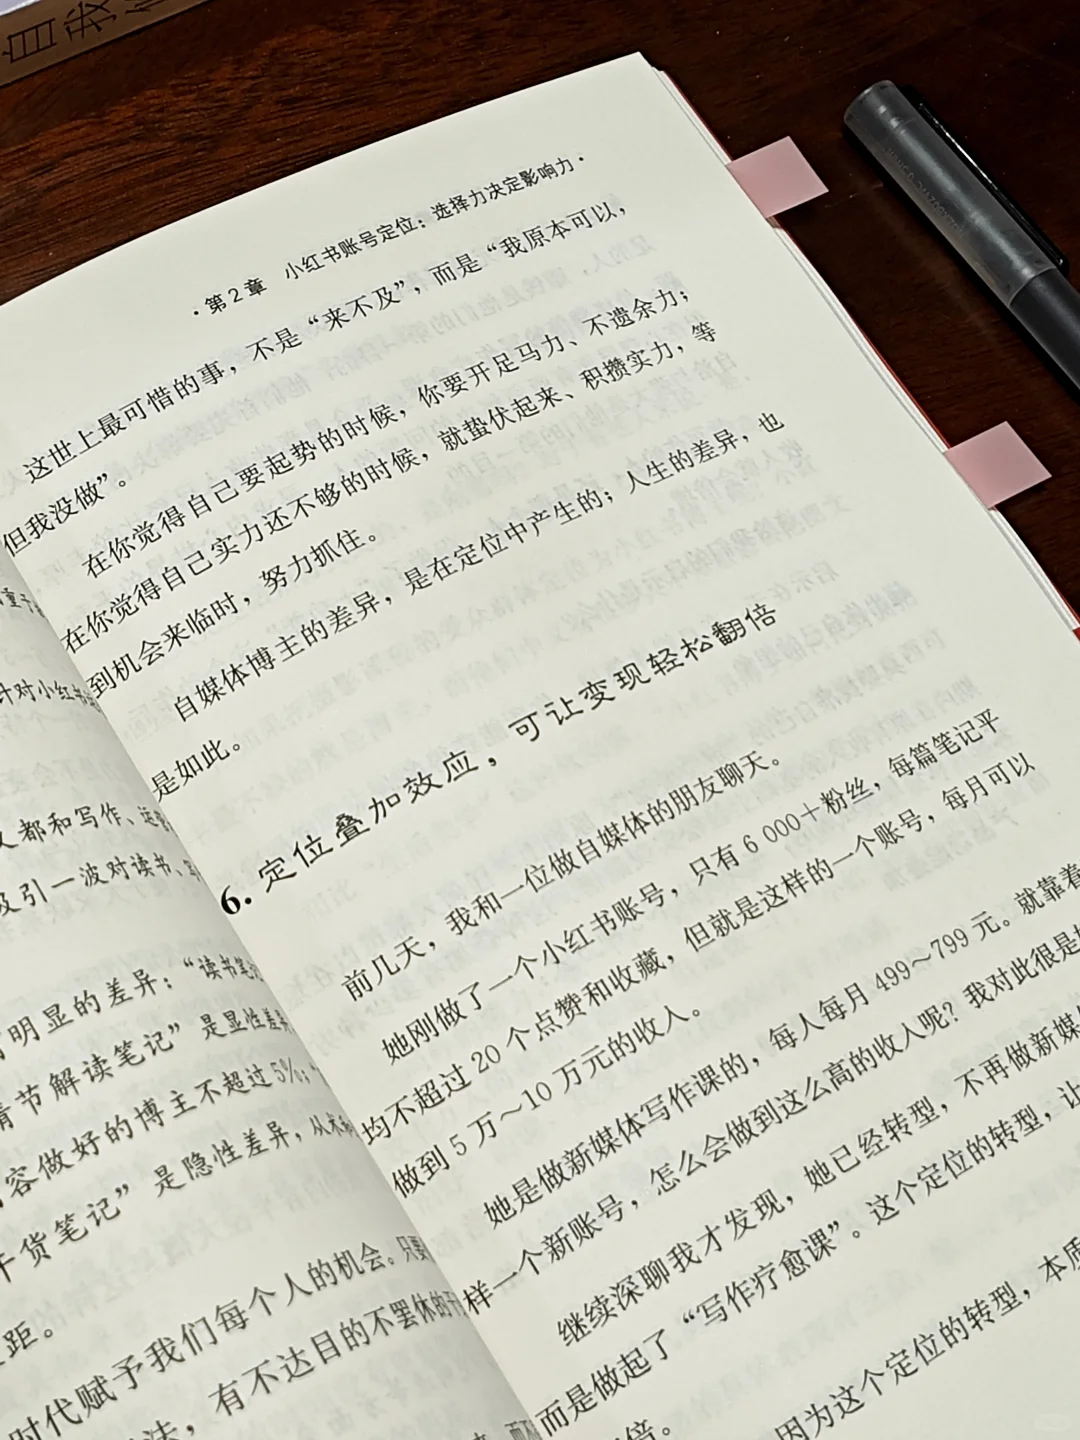 自我
重于
针对小红书
都和写作、运营
及引一波对读书、写
明显的差异：“读书笔记
情节解读笔记”是显性差异
容做好的博主不超过5%；
干货笔记”是隐性差异，从
距。
时代赋予我们每个人的机会。只要
法，有不达目的不罢休的干
·第2章 小红书账号定位：选择力决定影响力·
这世上最可惜的事，不是“来不及”，而是“我原本可以，
但我没做”。
在你觉得自己要起势的时候，你要开足马力、不遗余力；
在你觉得自己实力还不够的时候，就蛰伏起来、积攒实力，等
到机会来临时，努力抓住。
自媒体博主的差异，是在定位中产生的；人生的差异，也
是如此。
6. 定位叠加效应，可让变现轻松翻倍
前几天，我和一位做自媒体的朋友聊天。
她刚做了一个小红书账号，只有6 000＋粉丝，每篇笔记平
均不超过20个点赞和收藏，但就是这样的一个账号，每月可以
做到5万～10万元的收入。
她是做新媒体写作课的，每人每月499～799元。就靠着
样一个新账号，怎么会做到这么高的收入呢？我对此很是
继续深聊我才发现，她已经转型，不再做新媒
而是做起了“写作疗愈课”。这个定位的转型，让
倍。
因为这个定位的转型，本质